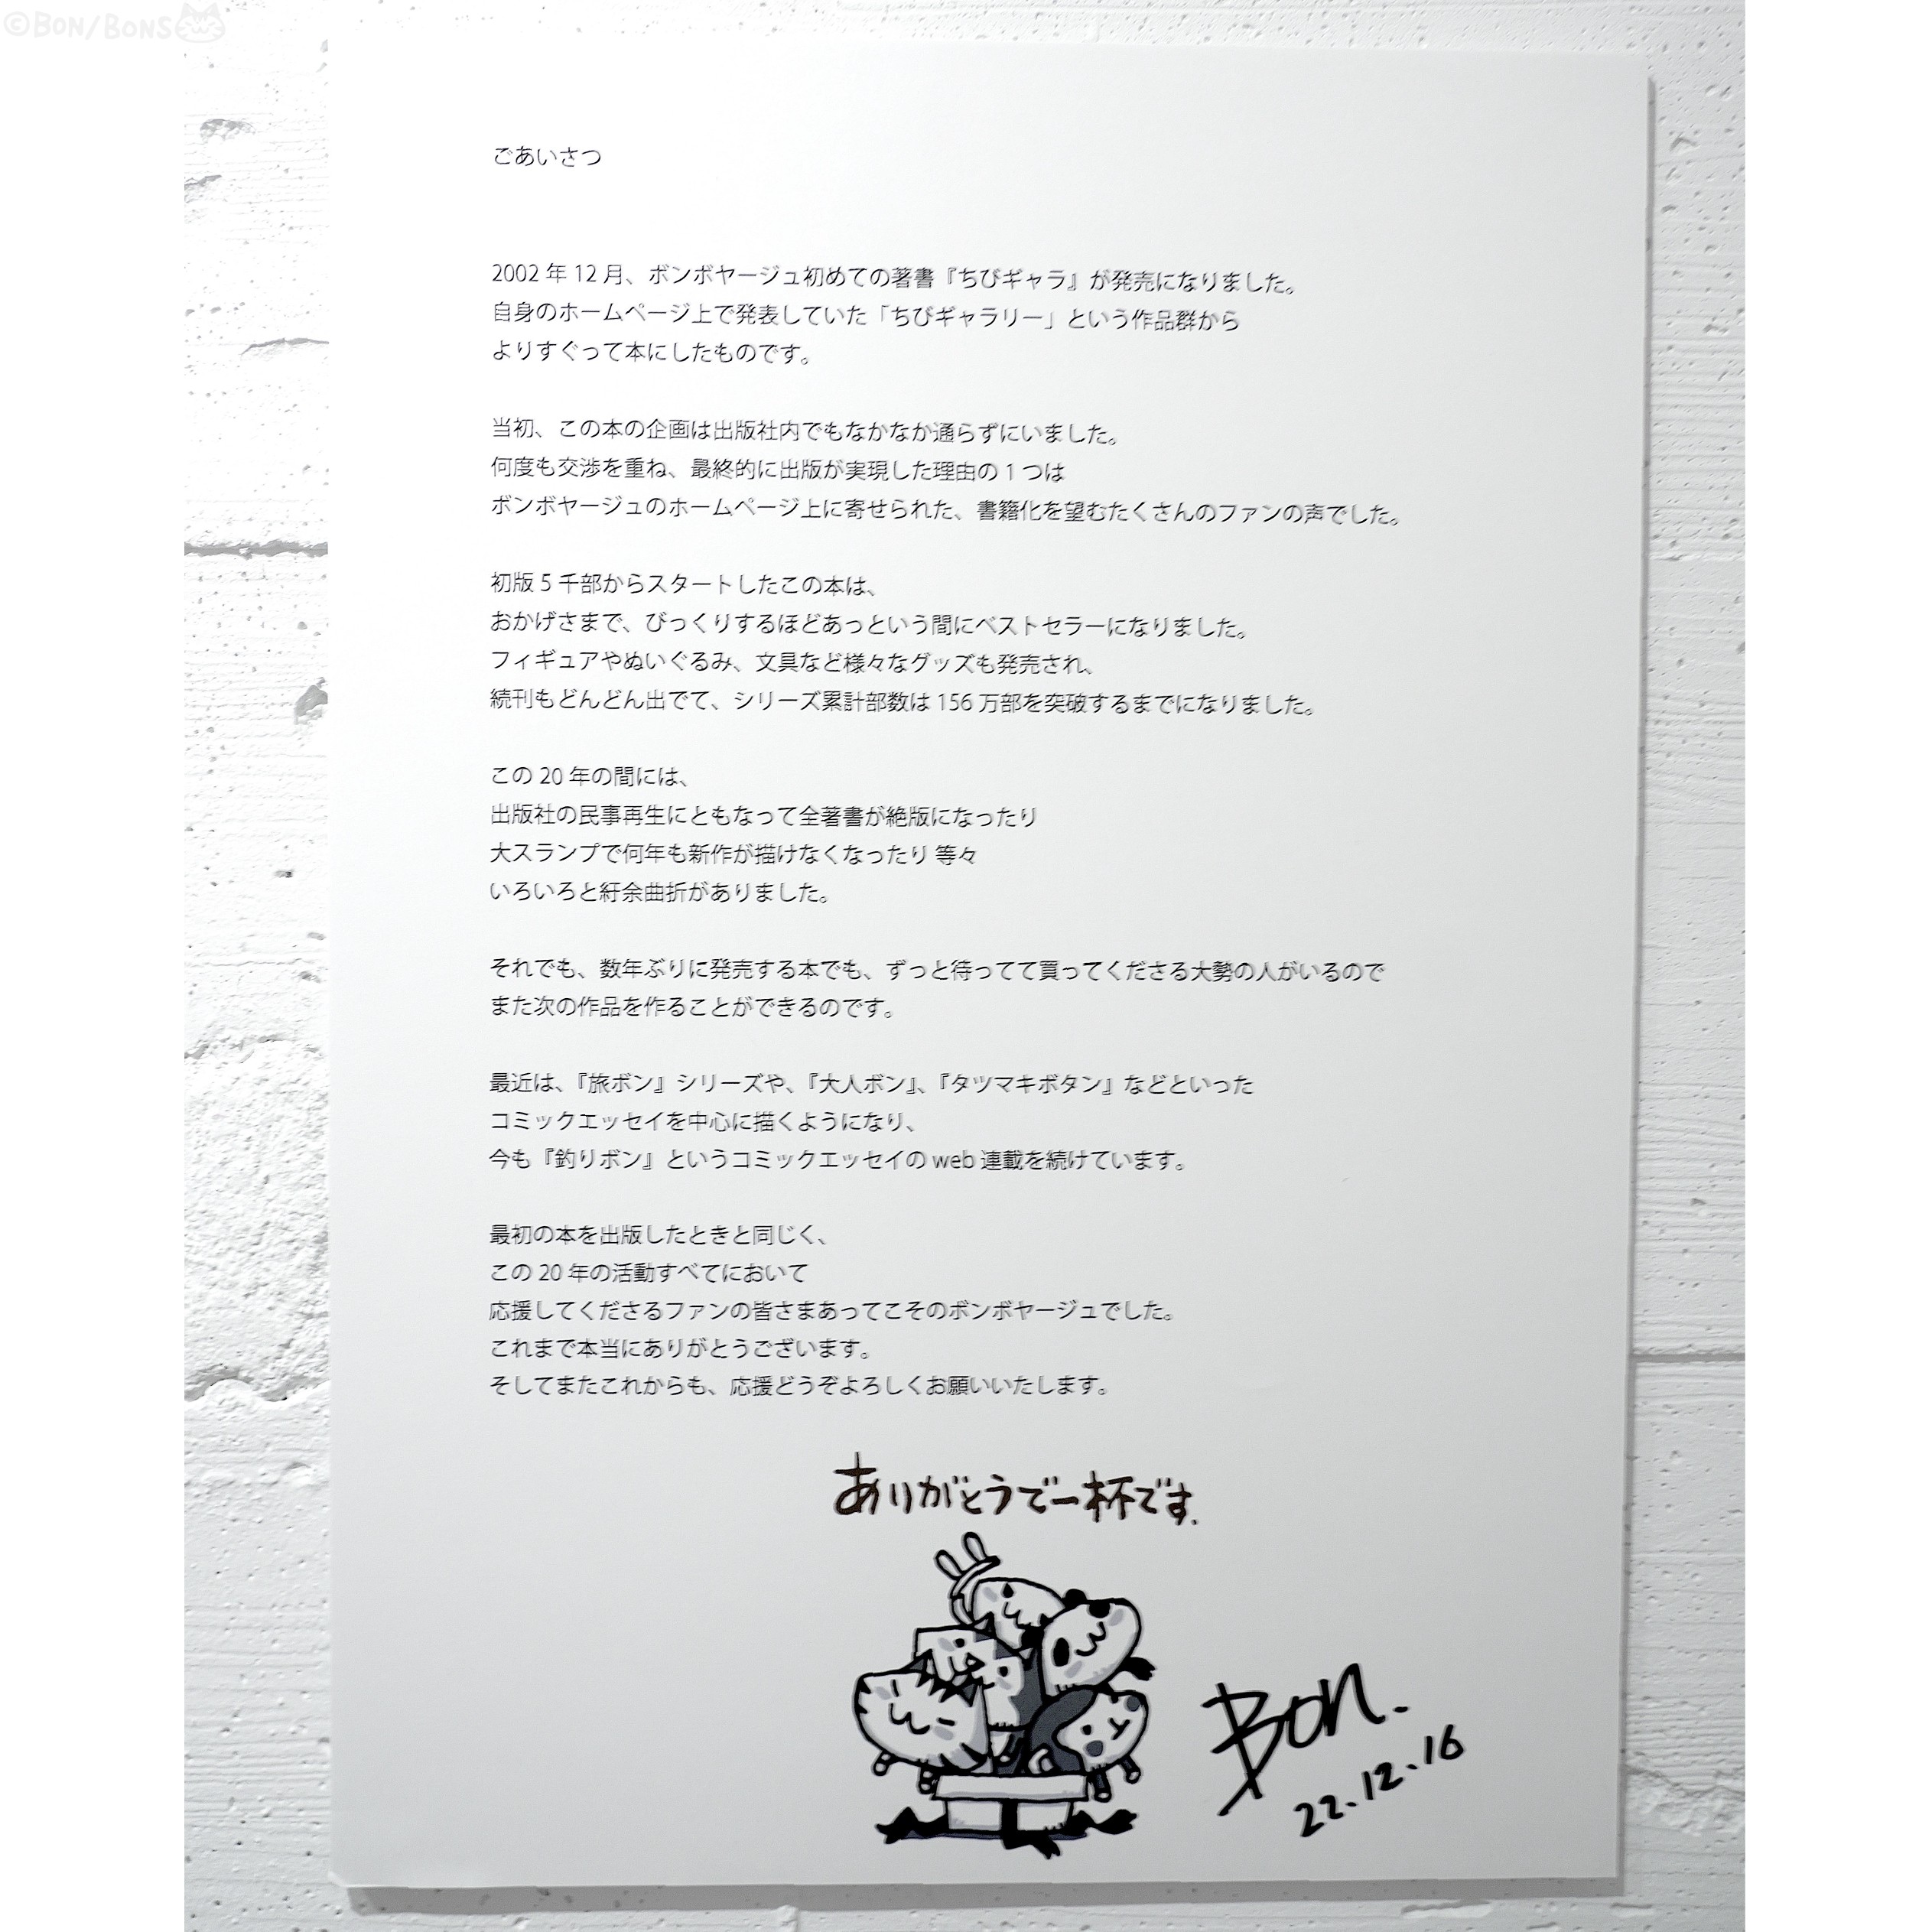 ©BON/BONS
ごあいさつ
2002年12月、ボンボヤージュ初めての著書『ちびギャラ』が発売になりました。
自身のホームページ上で発表していた「ちびギャラリー」という作品群から
よりすぐって本にしたものです。
当初、この本の企画は出版社内でもなかなか通らずにいました。
何度も交渉を重ね、最終的に出版が実現した理由の1つは
ボンボヤージュのホームページ上に寄せられた、書籍化を望むたくさんのファンの声でした。
初版5千部からスタートしたこの本は、
おかげさまで、びっくりするほどあっという間にベストセラーになりました。
フィギュアやぬいぐるみ、文具など様々なグッズも発売され、
続刊もどんどん出でて、シリーズ累計部数は156万部を突破するまでになりました。
この20年の間には、
出版社の民事再生にともなって全著書が絶版になったり
大スランプで何年も新作が描けなくなったり 等々
いろいろと紆余曲折がありました。
それでも、数年ぶりに発売する本でも、ずっと待ってて買ってくださる大勢の人がいるので
また次の作品を作ることができるのです。
最近は、『旅ボン』シリーズや、『大人ボン』、『タツマキボタン』などといった
コミックエッセイを中心に描くようになり、
今も『釣りボン』というコミックエッセイのweb連載を続けています。
最初の本を出版したときと同じく、
この20年の活動すべてにおいて
応援してくださるファンの皆さまあってこそのボンボヤージュでした。
これまで本当にありがとうございます。
そしてまたこれからも、応援どうぞよろしくお願いいたします。
ありがとうで一杯です.
Bon.
22.12.16